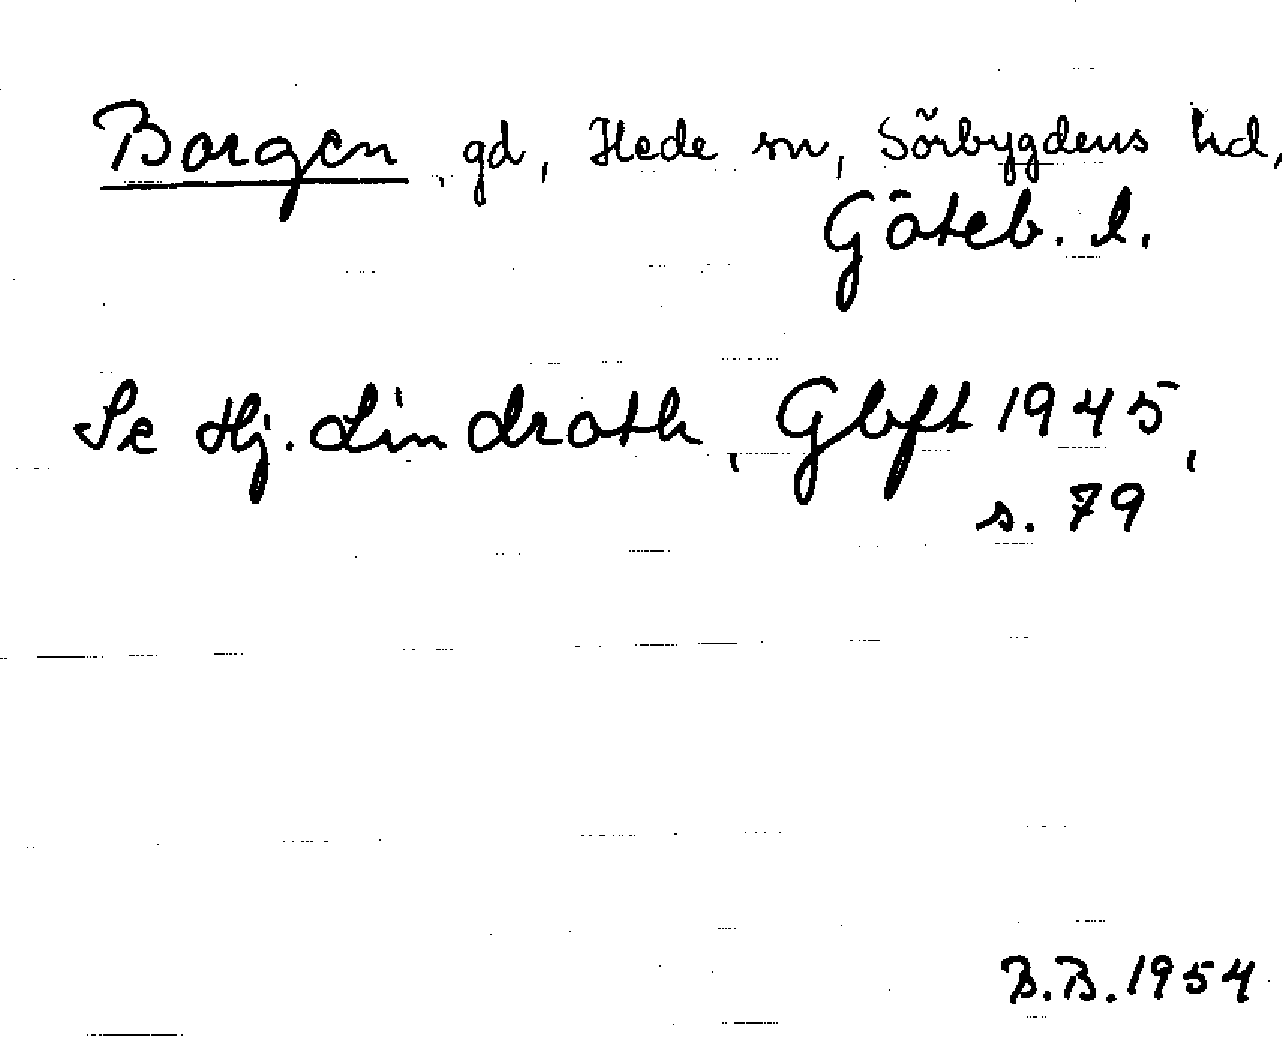 Borgen, gd, Hede sn, Sörbygdens hd,
Göteb. l.
Se Hj. Lindroth, Gbft 1945,
s. 79
B.B. 1954